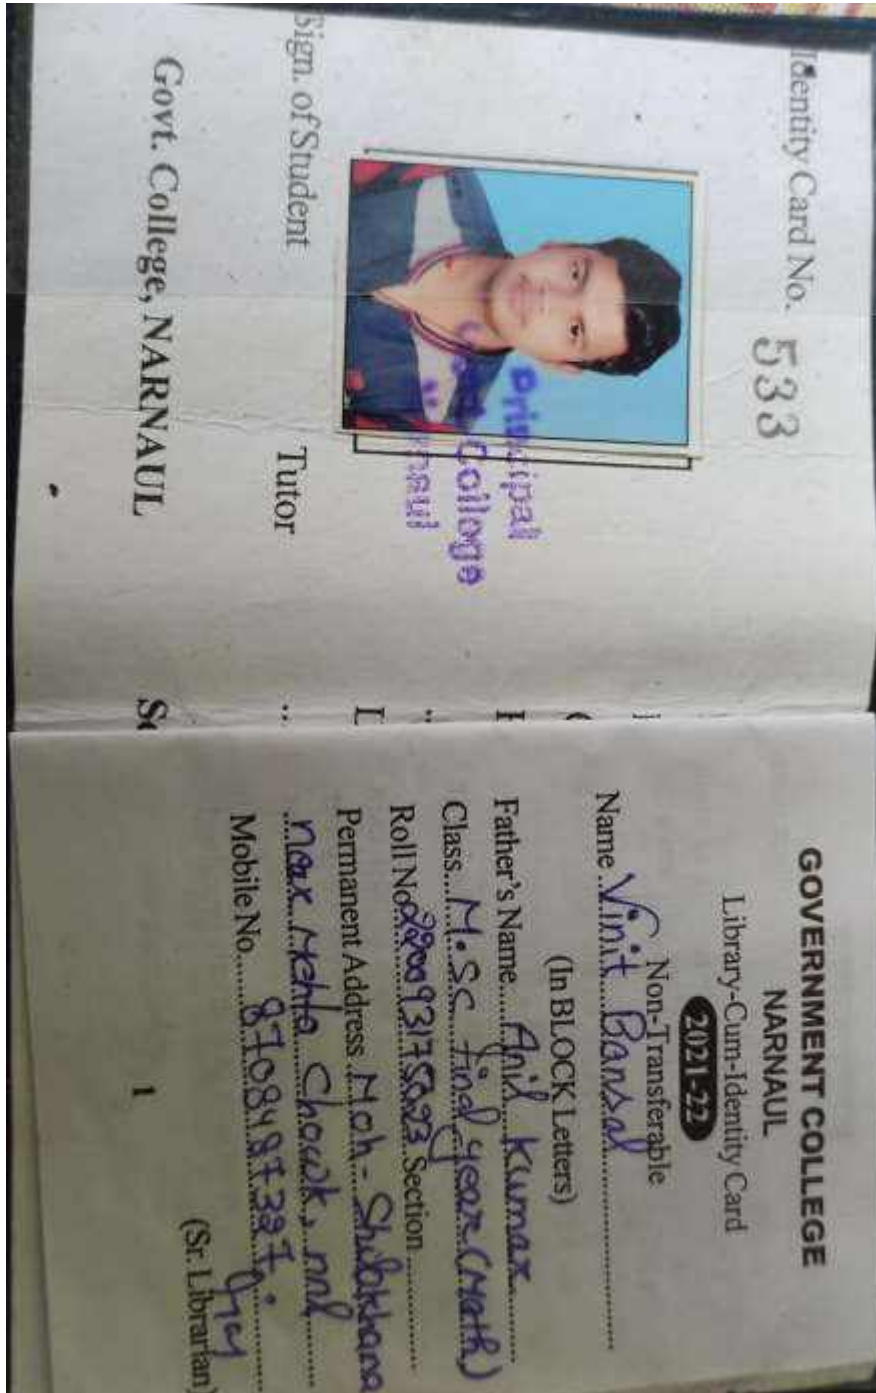 Identity Card No. 533
Principal
Govt. College
Sign. of Student Tutor
Govt. College, NARNAUL
GOVERNMENT COLLEGE
NARNAUL
Library-Cum-Identity Card
2021-22
Non-Transferable
Name Vinit Bansal
(In BLOCK Letters)
Father's Name Anil Kumar
Class M.Sc final year (Math)
Roll No Section
Permanent Address Moh-
Chowk, nnl
Mobile No. 8708487397
(Sr. Librarian)
1